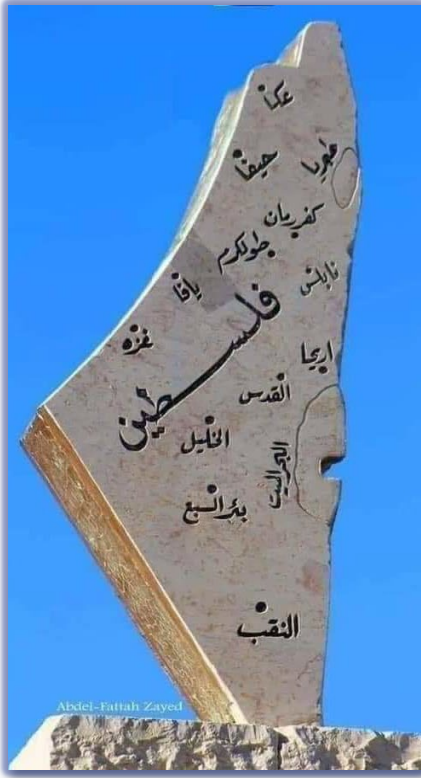 عكا
حيفا
طبريا
كفر رمان
طولكرم
نابلس
يافا
فلسطين
غزه
اريحا
القدس
الخليل
البحر الميت
بئر السبع
النقب
Abdel-Fattah Zayed